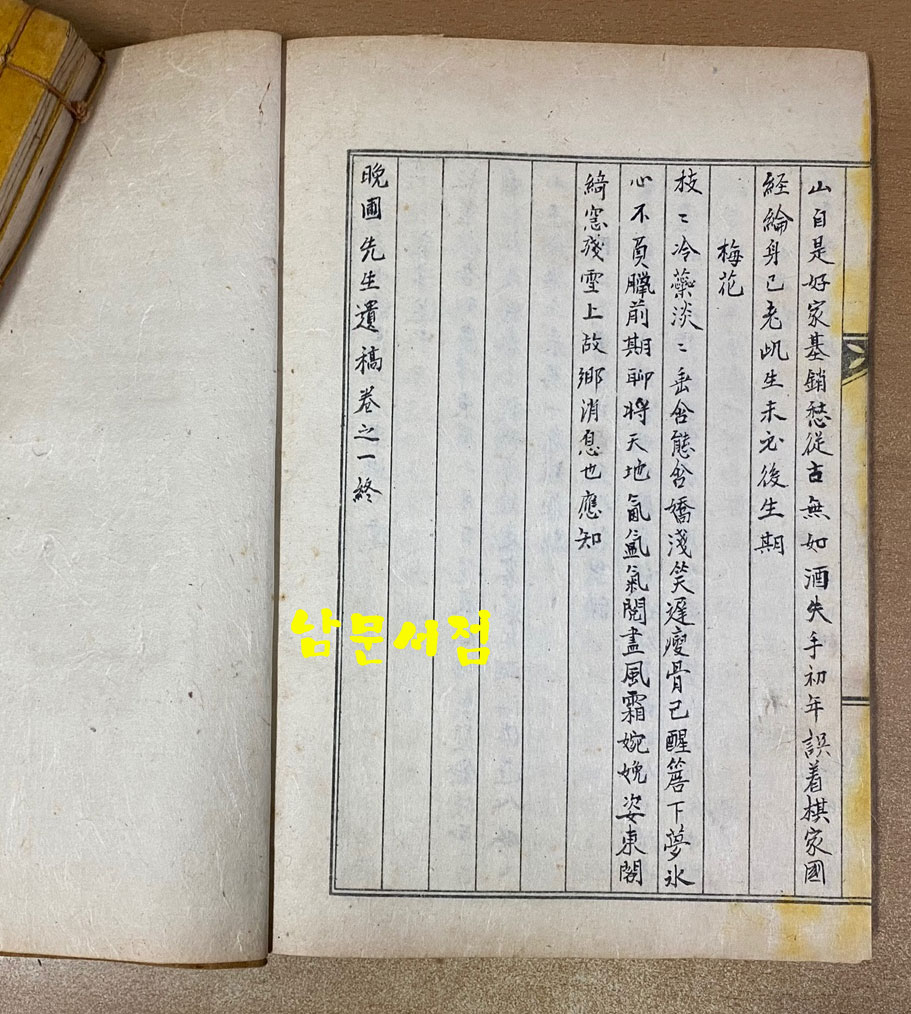 山自是好家基銷愁從古無如酒失手初年誤着棋家國
経綸身已老此生未必後生期
梅花
枝〻冷蘂淡〻垂含態含嬌淺笑遲瘦骨已醒簷下夢氷
心不負臘前期聊將天地氤氳氣閱盡風霜婉娩姿東閣
綺窓殘雪上故鄉消息也應知
晩圃先生遺稿卷之一終
남문서점